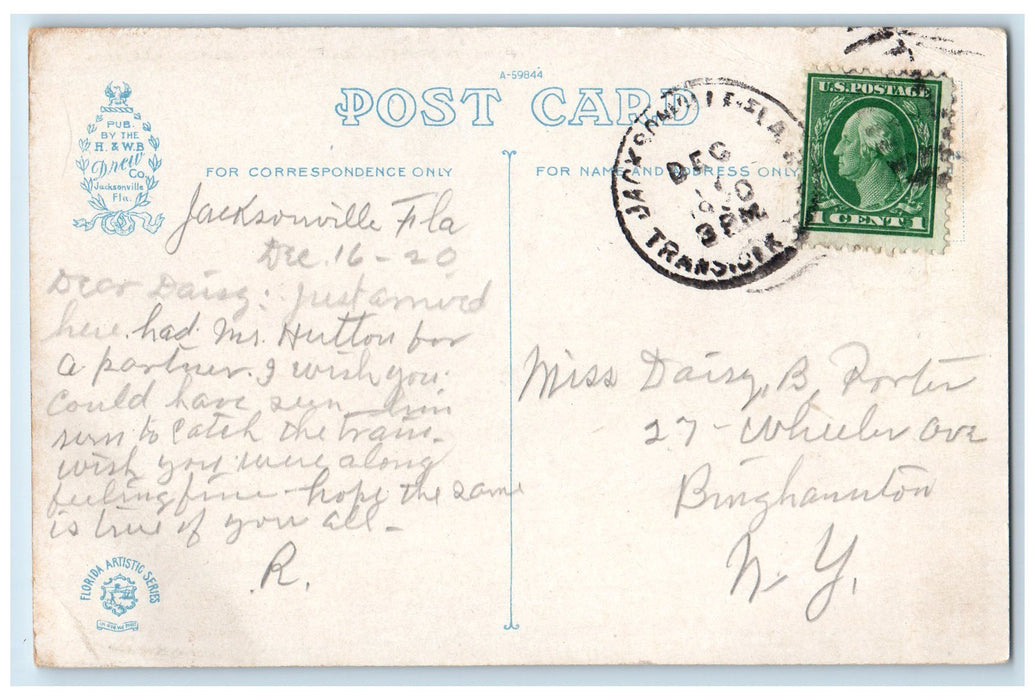 A-59844
POST CARD
PUB.
BY THE
H. & W.B
Drew
Co.
Jacksonville
Fla.
FOR CORRESPONDENCE ONLY
FOR NAME AND ADDRESS ONLY
JACKSONVILLE, FLA.
DEC
3 PM
TRANSIT CLK
U.S. POSTAGE
1 CENT 1
Jacksonville Fla
Dec. 16 - 20
Dear Daisy: just arrived
here had Mr. Hutton for
a partner. I wish you
could have seen him
run to catch the train.
wish you were along
feeling fine - hope the same
is true of you all -
R.
Miss Daisy B. Porter
27 - Wheeler ave
Binghamnton
N. Y.
FLORIDA ARTISTIC SERIES